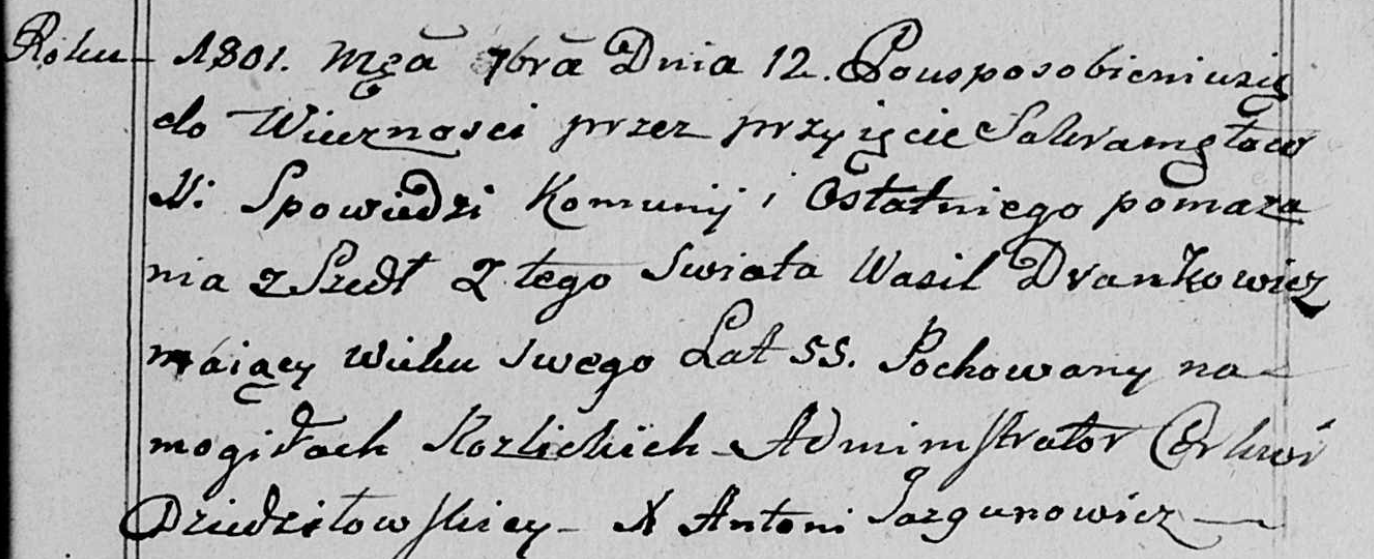 Roku 1801. Mca 7bra Dnia 12. Po usposobieniu się
do Wieczności przez przyięcie Sakramętow
SS: Spowiedzi Komunij i Ostatniego pomaza
nia zszedł z tego Swiata Wasil Drankowicz
maiący wieku swego Lat 55. Pochowany na
mogiłach Kozlickich Administrator Cerkwi
Dziedziłowskiey X Antoni Jazgunowicz